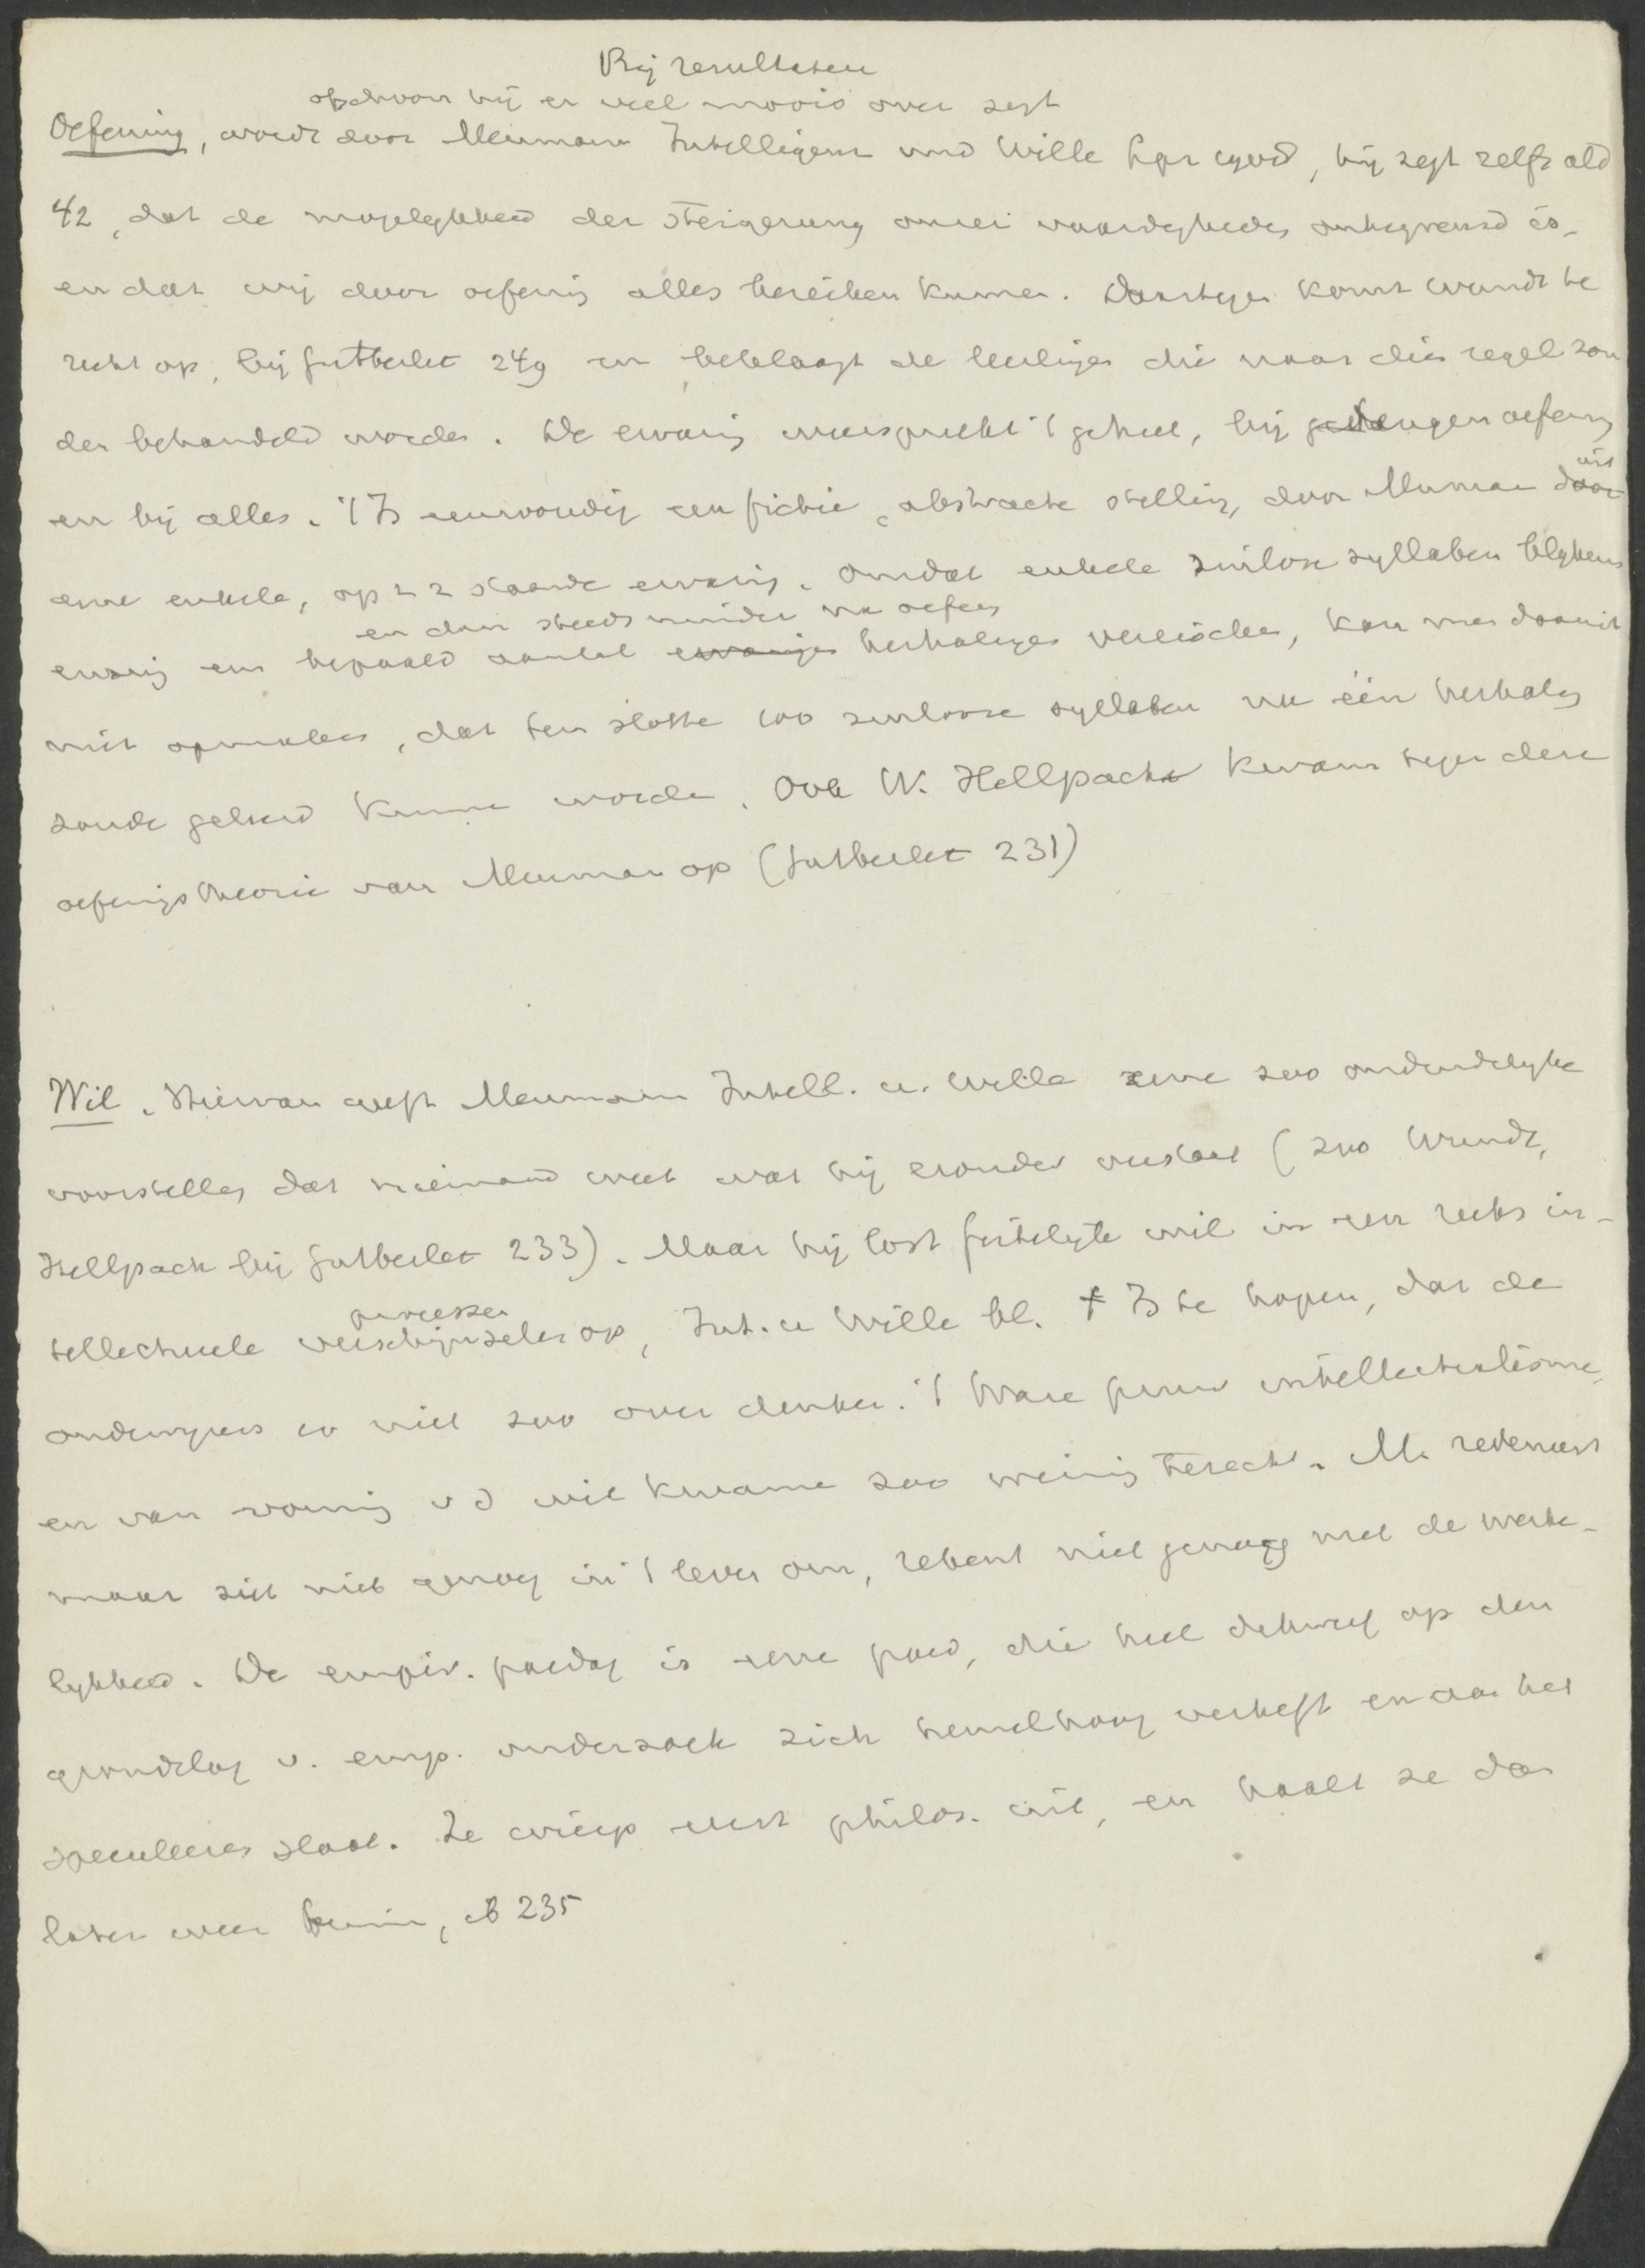 Bij resultaten
ofschoon hij er veel moois over zegt
Oefening, wordt door Meumann Intelligenz und Wille, hij zegt zelfs ald
42, dat de mogelykheid der Steigerung onzer vaardigheden onbegrensd is,
en dat wij door oefening alles bereiken kunnen. Daartegen komt Wundt te
recht op, bij Gutberlet 249 en beklaagt de leerlingen die naar dien regel zou
den behandeld worden. De ervaring weerspreekt 't geheel, bij geheugenoefening
en bij alles. 't Is eenvoudig een fictie, abstracte stelling, door Meuman uit
eene enkele, op z z staande ervaring. Omdat enkele zinloze syllaben blykens
en dan steeds minder na oefening
ervaring een bepaald aantal herhalingen vereischen, kan men daaruit
niet opmaken, dat ten slotte 100 zinlooze syllaben na één herhaling
zouden geleerd kunnen worden. Ook W. Hellpach kwam tegen deze
oefeningstheorie van Meuman op (Gutberlet 231)
Wil. Hiervan geeft Meumann Intell. u. Wille eene zoo onduidelyke
voorstelling dat niemand weet wat hij eronder verstaat (zoo Wundt,
Hellpach bij Gutberlet 233). Maar hij lost feitelyk wil in een reeks in-
processen
tellectueele verschijnselen op, Int. u Wille bl. † Is te hopen, dat de
onderwyzers er niet zoo over denken. 't Ware puur intellectualisme,
en van vorming v d wil kwame zoo weinig terecht. M. redeneert
maar ziet niet genoeg in 't leven om, rekent niet genoeg met de werke-
lykheid. De empir. paedag is eene paed, die heel dikwerf op den
grondslag v. emp. onderzoek zich hemelhoog verheft en aan het
speculeeren slaat. Ze wierp eerst philos. uit, en haalt ze dan
later weer binnen, ib 235